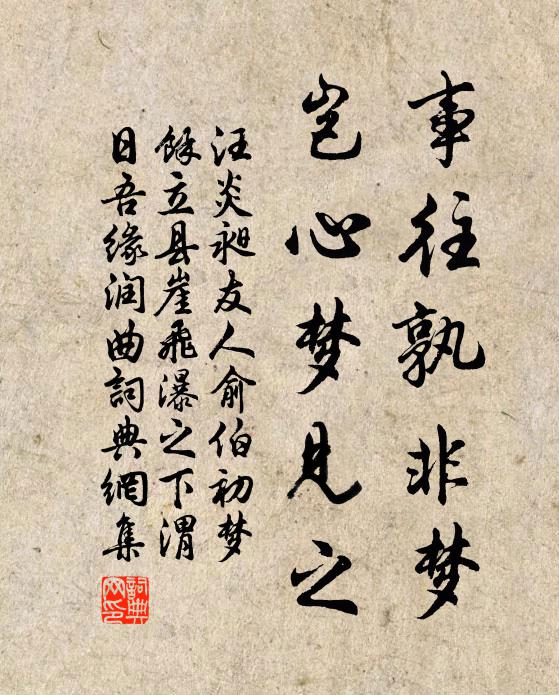 事往孰非梦
岂心梦见之
汪炎昶友人俞伯初梦
馀立县崖飛瀑之下渭
日吾缘润曲詞典網集
詞典网印